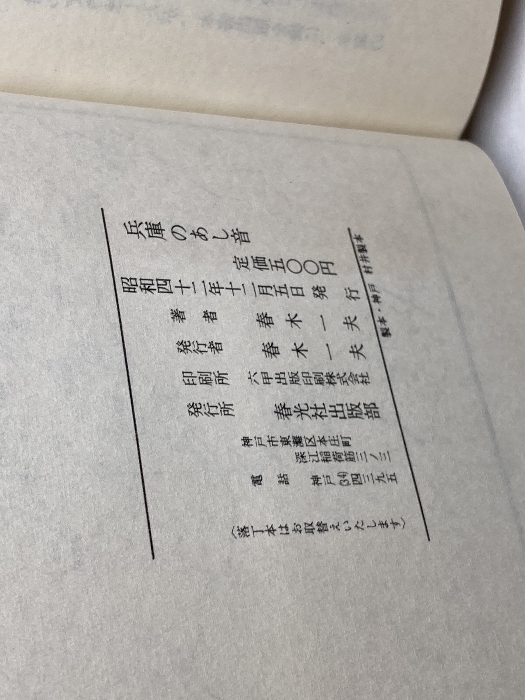 兵庫のあし音
定価五〇〇円
昭和四十二年十二月五日 発行
著者 春木一夫
発行者 春木一夫
印刷所 六甲出版印刷株式会社
発行所 春光社出版部
神戸市東灘区本庄町
深江稲荷筋三ノ三
電話 神戸(34)四三九五
(落丁本はお取替えいたします)
製本・神戸 村井製本